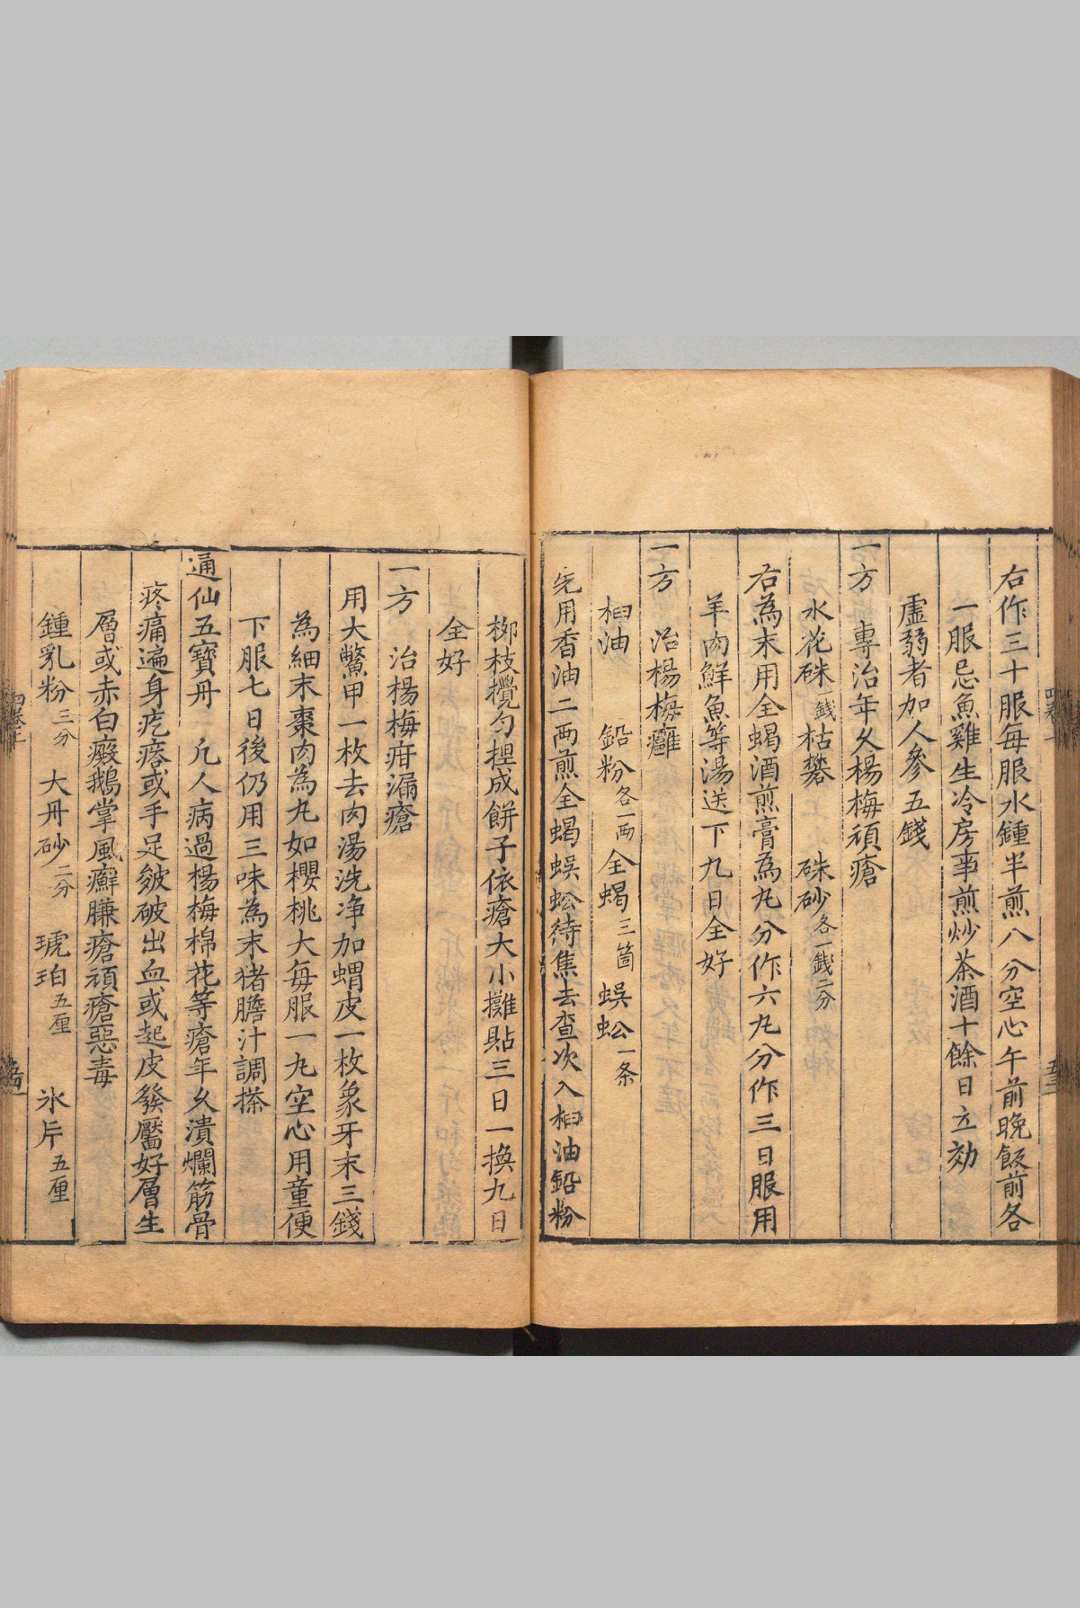 右作三十服每服水鍾半煎八分空心午前晚飯前各
一服忌魚雞生冷房事煎炒茶酒十餘日立効
虛弱者加人參五錢
一方　專治年久楊梅頑瘡
水花硃一錢　枯礬　硃砂各一錢二分
右為末用全蝎酒煎膏為丸分作六丸分作三日服用
羊肉鮮魚等湯送下九日全好
一方　治楊梅癰
桕油　鉛粉各一兩　全蝎三箇　蜈蚣一条
先用香油二兩煎全蝎蜈蚣待焦去查次入桕油鉛粉
柳枝攪勻捏成餅子依瘡大小攤貼三日一換九日
全好
一方　治楊梅疳漏瘡
用大鱉甲一枚去肉湯洗净加蝟皮一枚象牙末三錢
為細末棗肉為丸如櫻桃大每服一丸空心用童便
下服七日後仍用三味為末猪膽汁調搽
通仙五寶丹　凢人病過楊梅棉花等瘡年久潰爛筋骨
疼痛遍身疙瘩或手足皴破出血或起皮發靨好層生
層或赤白癜鵝掌風癬臁瘡頑瘡惡毒
鍾乳粉三分　大丹砂二分　琥珀五厘　氷片五厘